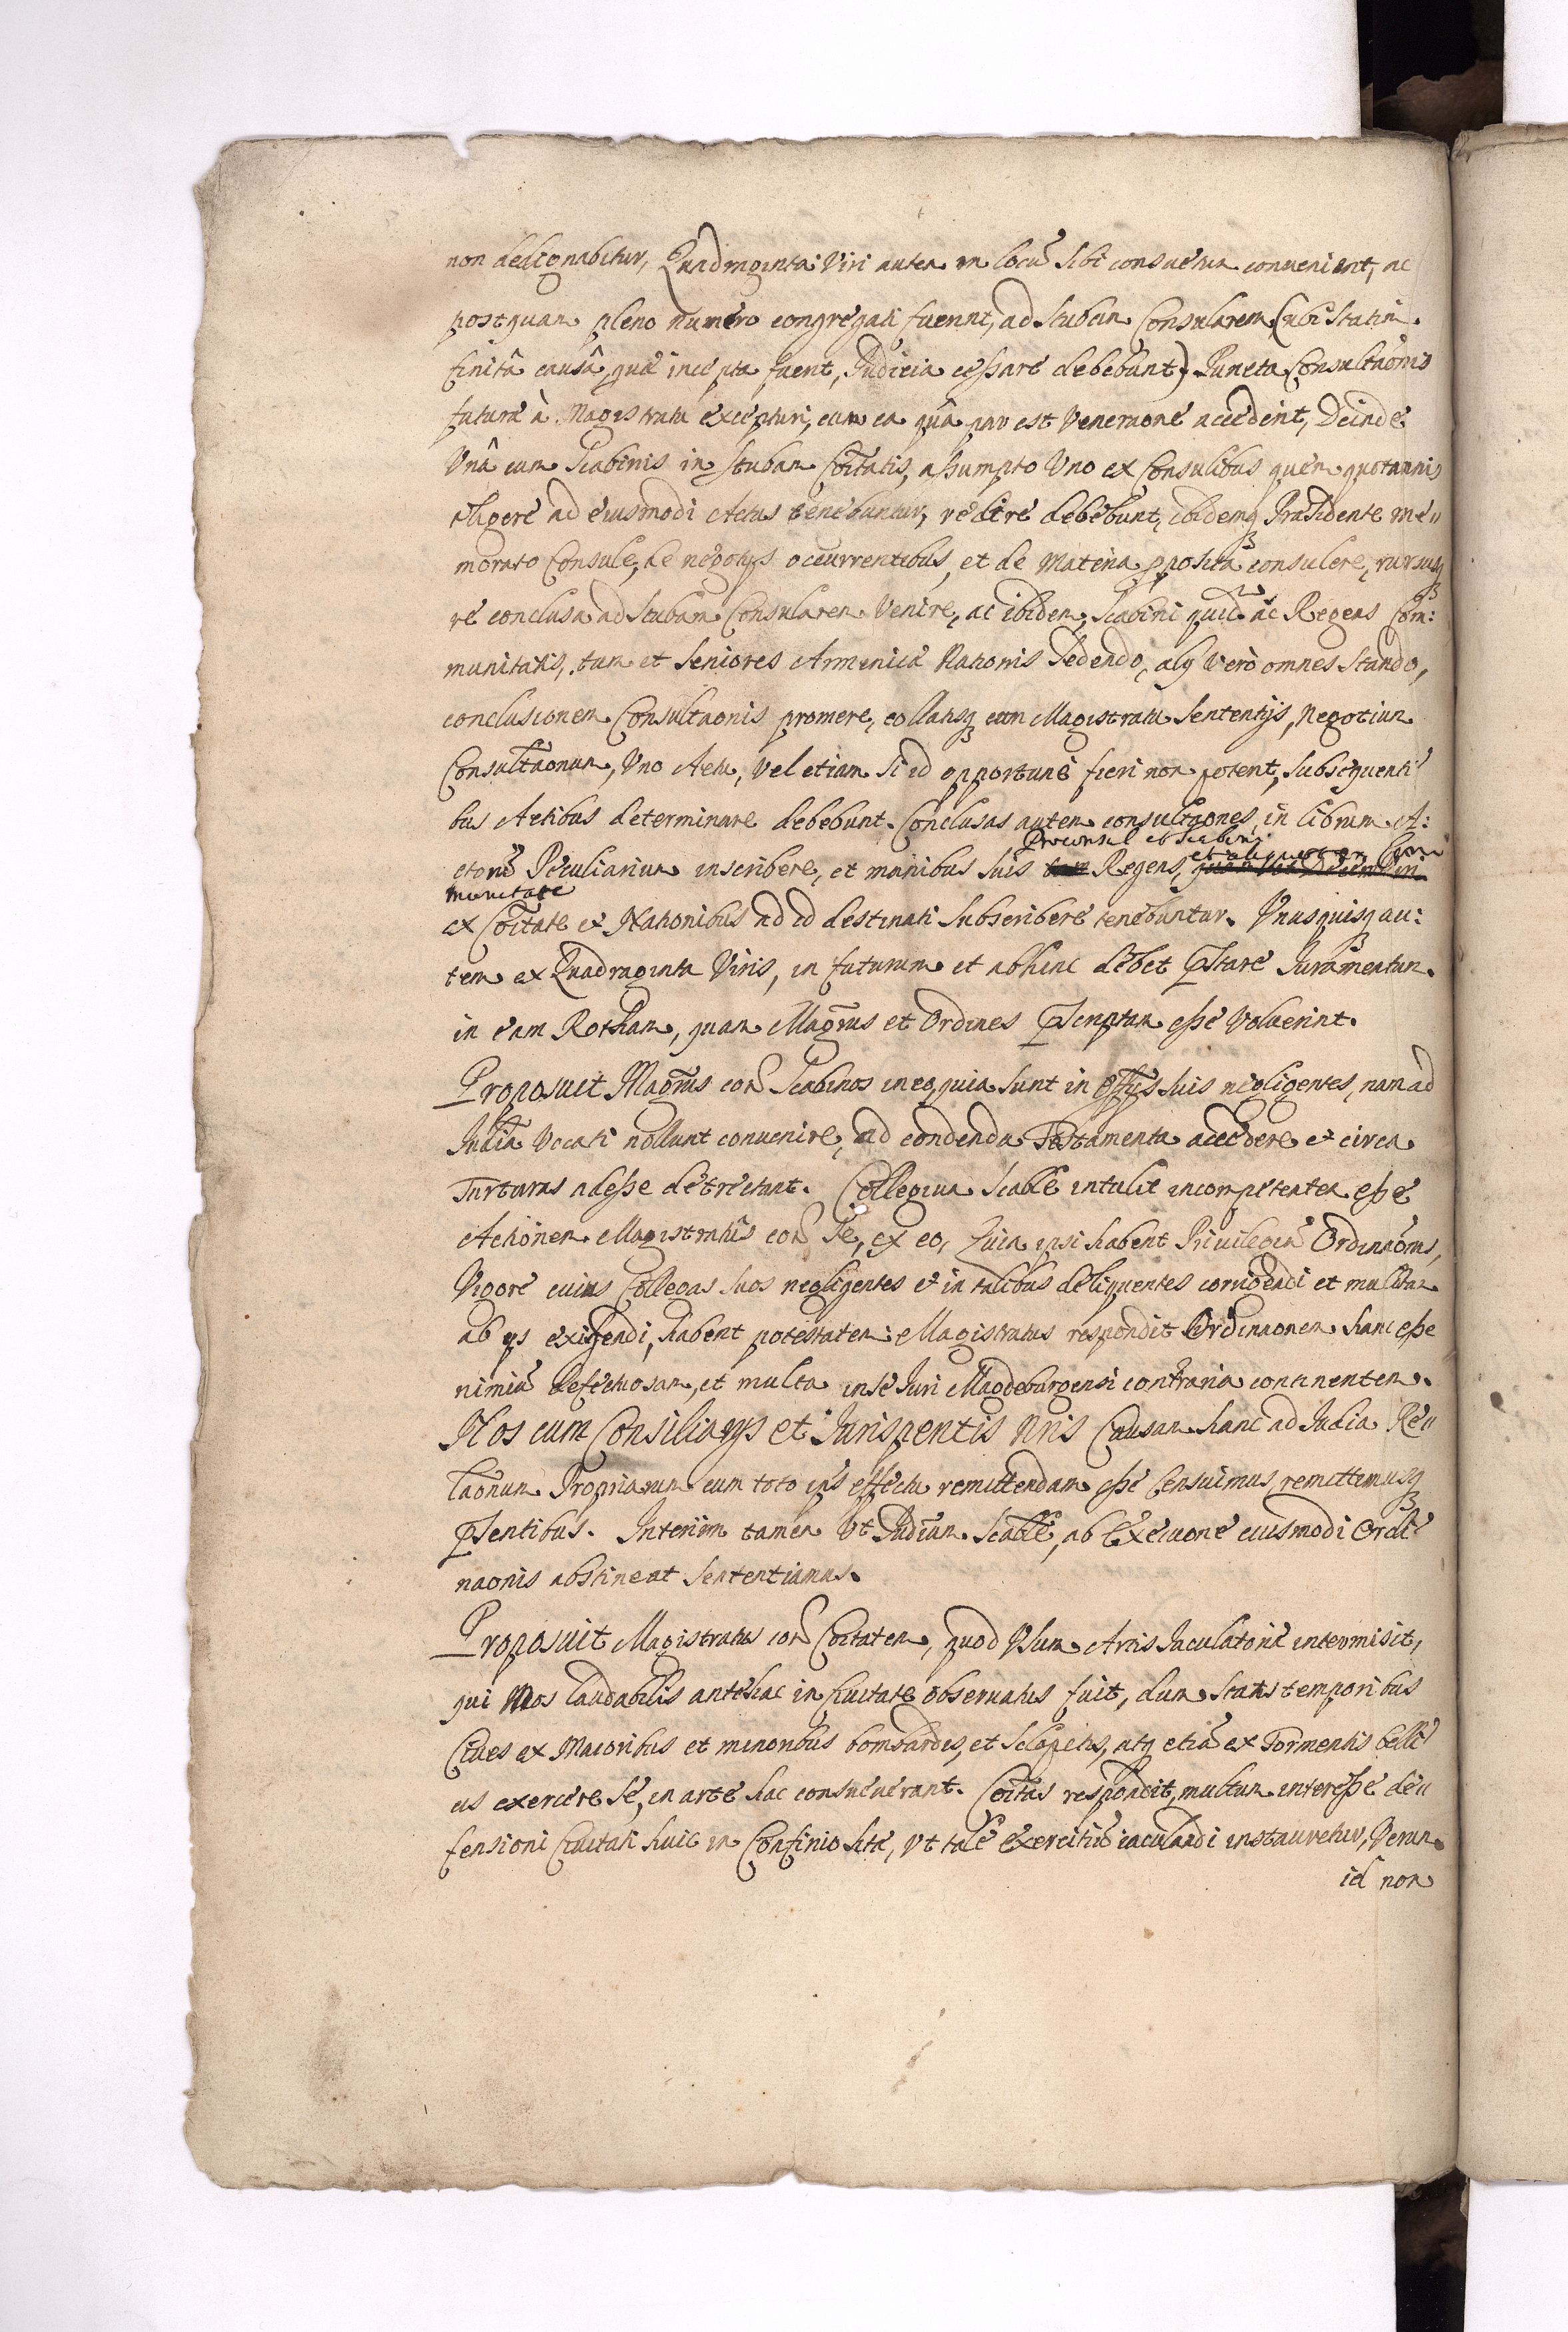 non dedignabitur, Quadraginta Viri autem in locũ sibi consuetum convenient, ac
postquam pleno numero congregati fuerint, ad stubam Consularem (ubi statim
finitâ causâ, quæ incepta fuerit, Judicia cessare debebunt) Puncta Consultaõnis
futuræ à Magistratu excepturi, cum ea quâ par est Veneraõne accedent, Deinde
Vnâ cum Scabinis in stubam Cõitatis, assumpto Vno ex Consulibus quem quotannis
eligere ad eiusmodi Actus tenebuntur, redire debebunt, ibidemq Præsidente me„
morato Consule, de negotijs occurrentibus, et de materia pposita consulere, rursusq
re conclusa ad stubam Consularem Venire, ac ibidem, Scabini quid. ac Regens Com:
munitatis, tum et Seniores Armenicæ Nationis sedendo, alij verò omnes stando,
conclusionem Consultaonis promere, collatisq cum Magistratu Sententijs, negotium
Consultaõnum, Vno Actu, vel etiam si id opportunè fieri non poterit, subsequenti
bus Actibus determinare debebunt. Conclusas autem consultaones, in librum A:
Proconsul et Scabini
ctorũ Peculiarium inscribere, et manibus suis Regens, et aliqui Com
munitate
ex Cõitate et Nationibus ad id destinati subscribere tenebuntur. Vnusquisq au:
tem ex Quadraginta Viris, in futurum et abhinc debet pstare Juramentum
in eam Rotham, quam Magr̃us et Ordines pscriptam esse voluerint.
Proposuit Magr̃us con̄ Scabinos in eo, quia sunt in offijs suis negligentes, nam ad
Judia vocati nollunt convenire, ad condenda Testamenta accedere et circa
Torturas adesse detrectant. Collegium Scable intulit incompetentem esse
Actiõnem Magistratûs con̄ se, ex eo, Quia ipsi habent Privilegiũ Ordinaõnis,
Vigore cuius Collegas suos negligentes et in talibus deliquentes corrigendi et mulctam
ab ijs exigendi, habent potestatem: Magistratus respondit Ordinaonem hanc esse
nimiũ defectuosam, et multa in se Juri Magdeburgensi contraria continentem.
Nos cum Consiliarijs et Jurisperitis Nr̃is Causam hanc ad Judia Re„
laõnum Propriarum cum toto ips effectu remittendam esse censuimus, remittimusq
psentibus. Interim tamen Vt Judium Scable, ab Execuone eiusmodi Ordi
naonis abstineat sententiamus.
Proposuit Magistratus con̄ Cõitatem, quod Vsum Artis Jaculatoriæ intermisit,
qui Mos laudabilis antehac in Civitate observatus fuit, dum statis temporibus
Cives ex Maioribus et minoribus bombardis, et Sclopetis, atq etiã ex Tormentis belli
cis exercere se, in arte hac consueuerant. Cõitas respondit, multum interesse de„
fensioni Civitati huic in Confinio sitæ, Vt tale exercitiũ iaculandi instauretur, Verum
id non